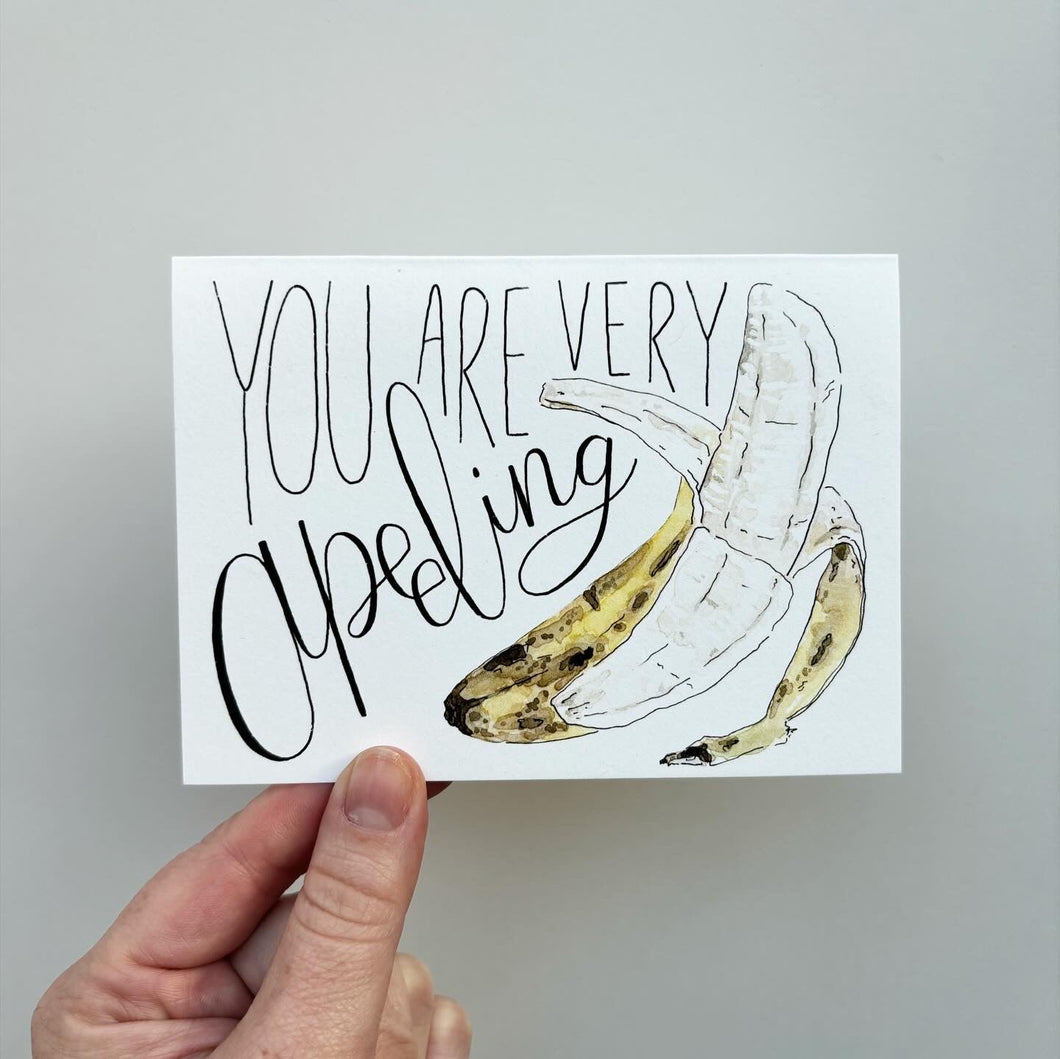 YOU ARE VERY
apeeling